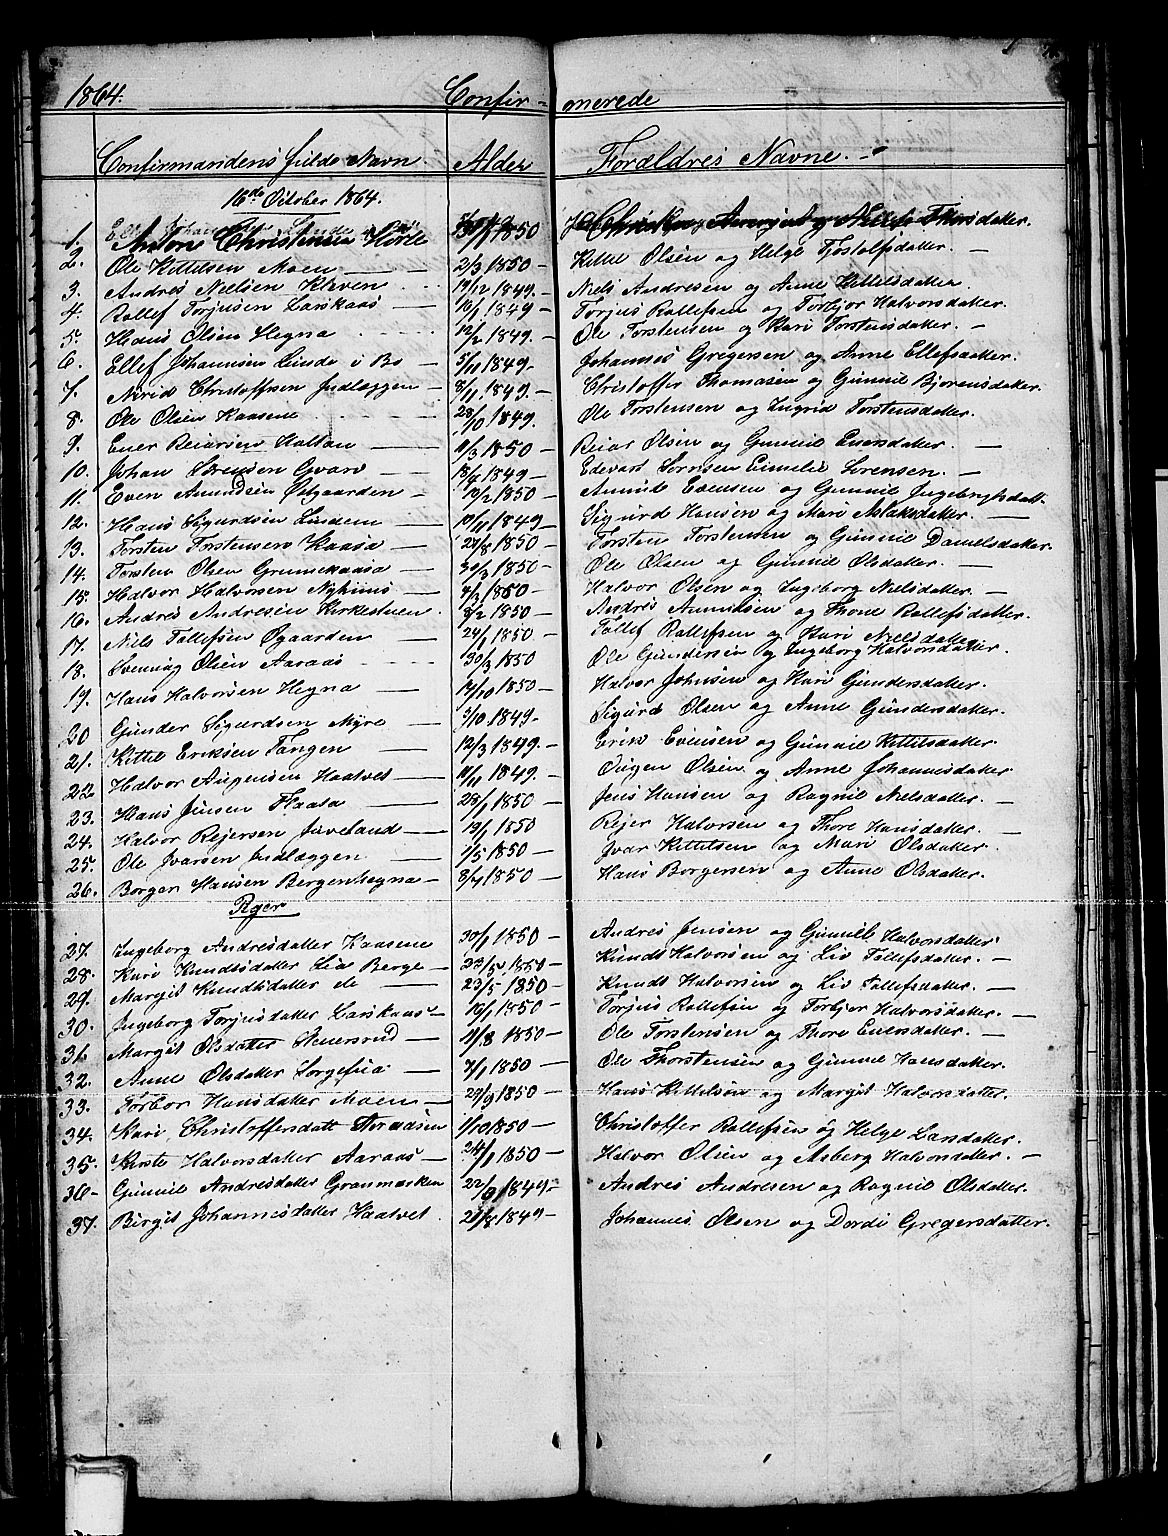 1864. Confirmerede
Confirmandens fulde Navn. Alder Forældres Navne.
16de October 1864.
1. Anton Christensen Hørte 1850 Niels Thorsdatter.
2. Ole Kittilsen Moen 2/3 1850 Kittel Olsen og Helge Tjostolfsdatter.
3. Andres Nielsen Kleven 19/12 1849. Niels Andresen og Anne Kittilsdatter.
4. Rollef Torjusen Larskaas 1849 Torjus Rollefsen og Torbjor Halvorsdatter.
5. Hans Olsen Hegna 12/2 1849. Ole Torstensen og Kari Torstensdatter.
6. Ellef Johannesen Lunde i Bø 5/11 1849 Johannes Gregersen og Anne Ellefsdatter.
7. Christoffersen Indlæggen 8/11 1849. Christoffer Thomasen og Gunnil Bjørensdatter.
8. Ole Olsen Kaasene 28/10 1849. Ole Torstensen og Ingrid Torstensdatter.
9. Ener Reiarsen Haltan 11/3 1850 Reiar Olsen og Gunnil Enersdatter.
10. Johan Sørensen Gvarv 1849 Edevart Sørnsen Emilie Sørensen.
11. Even Amundsen Østgaarden 19/2 1850 Amund Evensen og Gunnil Ingebrigtsdatt.
12. Hans Sigurdsen Lindem 19/11 1849 Sigurd Hansen og Mari Aslaksdatter.
13. Torsten Torstensen Kaasa 1850 Torsten Torstensen og Gunnil Danielsdatter.
14. Torsten Olsen Grimekaasa 30/3 1850 Ole Olsen og Gunnil Olsdatter.
15. Halvor Halvorsen Nyhuus 1850 Halvor Olsen og Ingeborg Nielsdatter.
16. Andres Andresen Kirkestuen. 1850 Andres Amundsen og Thone Rollefsdatter.
17. Niels Tollefsen Øgaarden 24/1 1850. Tollef Rollefsen og Kari Nielsdatter.
18. Svenung Olsen Aaraas 30/3 1850 Ole Gundersen og Ingeborg Halvorsdatter.
19. Hans Halvorsen Hegna 14/10 1850 Halvor Johnsen og Kari Gundersdatter.
20 Gunder Sigurdsen Myre 5/10 1849 Sigurd Olsen og Anne Gundersdatter.
21. Kittil Eriksen Tangen 12/3 1849. Erik Evensen og Gunnil Kittilsdatter.
22 Halvor Augensen Haatvet 11/11 1849. Ougen Olsen og Anne Johannesdatter
23. Hans Jensen Kaasa 28/1 1850 Jens Hansen og Ragnil Nielsdatter.
24. Halvor Rejersen Juveland 19/1 1850 Rejer Halvorsen og Thore Hansdatter.
25. Ole Ivarsen Indlæggen 1/5 1850 Ivar Kittilsen og Mari Olsdatter.
26. Borger Hansen Bergenhegna 8/4 1850 Hans Borgersen og Anne Olsdatter.
Piger
27. Ingeborg Andresdatter Kaasene 30/1 1850 Andres Jensen og Gunnil Halvorsdatter
28. Kari Knudtsdatter Lia Berge 23/5 1850 Knudt Halvorsen og Liv Tollefsdatter.
29. Margit Knudtsdatter do 23/5 1850 Knudt Halvorsen og Liv Tollefsdatter.
30. Ingeborg Torjusdatter Larskaas 19/1 1850 Torjus Rollefsen og Torbjor Halvorsdatter.
31. Margit Olsdatter Stenersrud 11/8 1850 Ole Torstensen og Thore Enersdatter.
32. Anne Olsdatter Sorgefria 7/1 1850 Ole Thorstensen og Gunnil Hansdatter.
33. Torbor Hansdatter Moen 29/9 1850 Hans Kittilsen og Margit Halvorsdatter.
34. Kari Christoffersdatt 1/10 1850 Christoffer Rollefsen og Helge Larsdatter.
35. Kirste Halvorsdatter Aaraas 24/1 1850 Halvor Olsen og Asberg Halvorsdatter.
36 Gunnil Andresdatter Gransmarken 22/9 1849 Andres Andresen og Ragnil Olsdatter.
37. Birgit Johannesdatter Haatvet. 21/8 1849 Johannes Olsen og Dordi Gregersdatter.